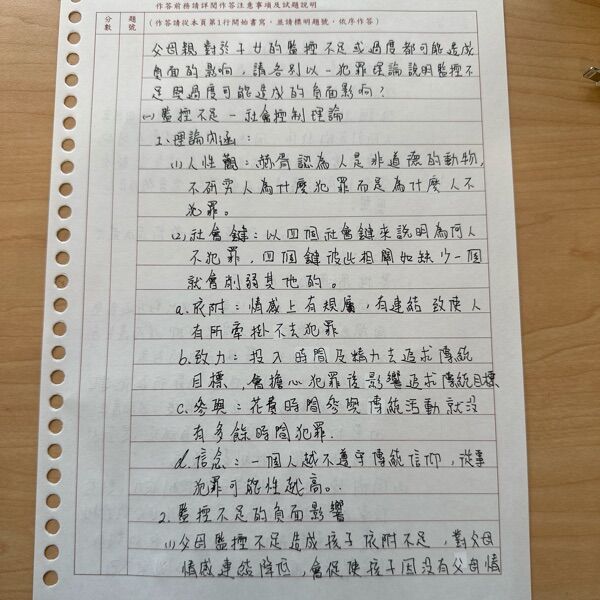 作答前務請詳閱作答注意事項及試題說明
分數
題號
(作答請從本頁第1行開始書寫，並請標明題號，依序作答)
父母親對於子女的監控不足或過度都可能造成
負面的影响，請各別以一犯罪理論說明監控不
足與過度可能造成的負面影响?
(一)監控不足-社會控制理論
1.理論內涵:
(1)人性觀:赫胥認為人是非道德的動物，
不研究人為什麼犯罪而是為什麼人不
犯罪。
(2)社會鍵:以四個社會鍵來說明為何人
不犯罪，四個鍵彼此相關如缺少一個
就會削弱其他的。
a.依附:情感上有規屬，有連結致使人
有所牽掛不去犯罪
b.致力:投入時間及精力去追求傳統
目標，會擔心犯罪後影響追求傳統目標
c.參與:花費時間參與傳統活動就沒
有多餘時間犯罪.
d.信念:一個人越不遵守傳統信仰，從事
犯罪可能性越高。
2.監控不足的負面影響
(1)父母監控不足造成孩子依附不足，對父母
情感連結降低，會促使孩子因沒有父母情